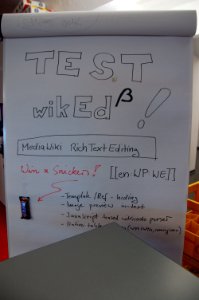 TEST
wikEd β !
MediaWiki Rich Text Editing
Win a Snickers! [[en WP WE]]
- Template / Ref - hiding
- Image preview in-text
- JavaScript based wikicode parser
- Native table